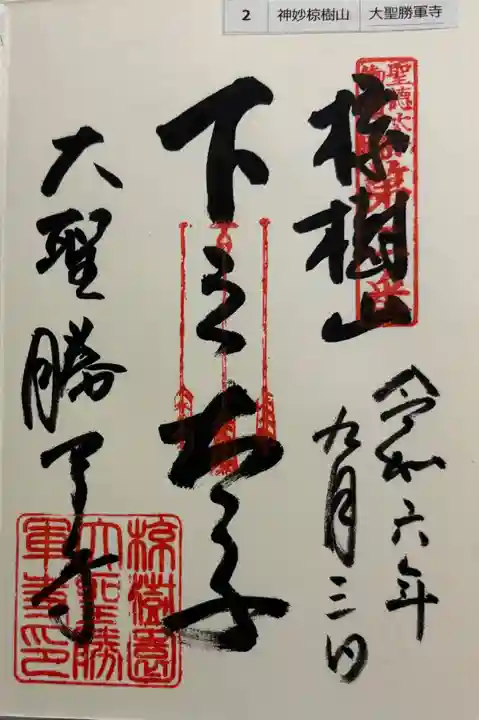 2 神妙椋樹山 大聖勝軍寺
椋樹山
令和六年
九月三日
下之太子
大聖勝軍寺
椋樹園
大聖勝
軍寺印